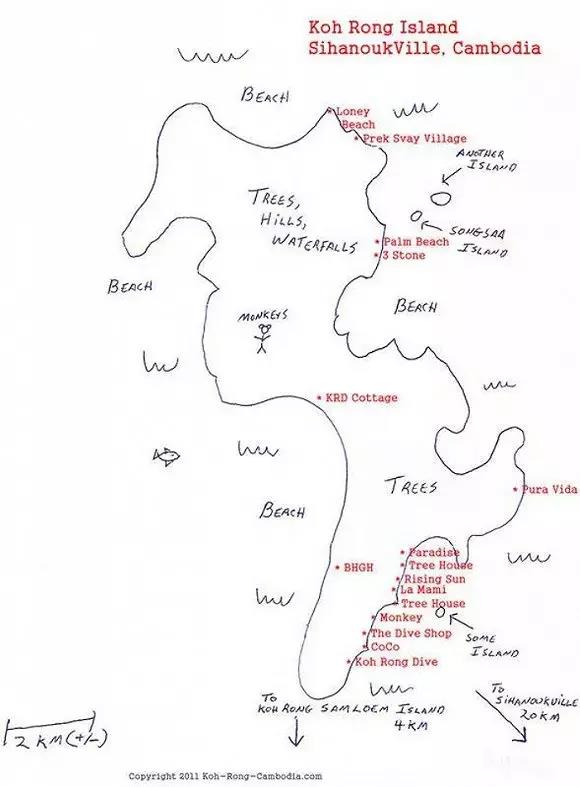 Koh Rong Island
SihanoukVille, Cambodia
BEACH
Loney
Beach
Prek Svay Village
ANOTHER
ISLAND
TREES,
HILLS,
WATERFALLS
SONGSAA
ISLAND
Palm Beach
3 Stone
BEACH
BEACH
MONKEYS
KRD Cottage
TREES
Pura Vida
BEACH
Paradise
Tree House
BHGH
Rising Sun
La Mami
Tree House
Monkey
The Dive Shop
CoCo
Koh Rong Dive
SOME
ISLAND
TO
KOH RONG SAMLOEM ISLAND
4 KM
TO
SIHANOUKVILLE
20 KM
2 KM (+/-)
Copyright 2011 Koh-Rong-Cambodia.com